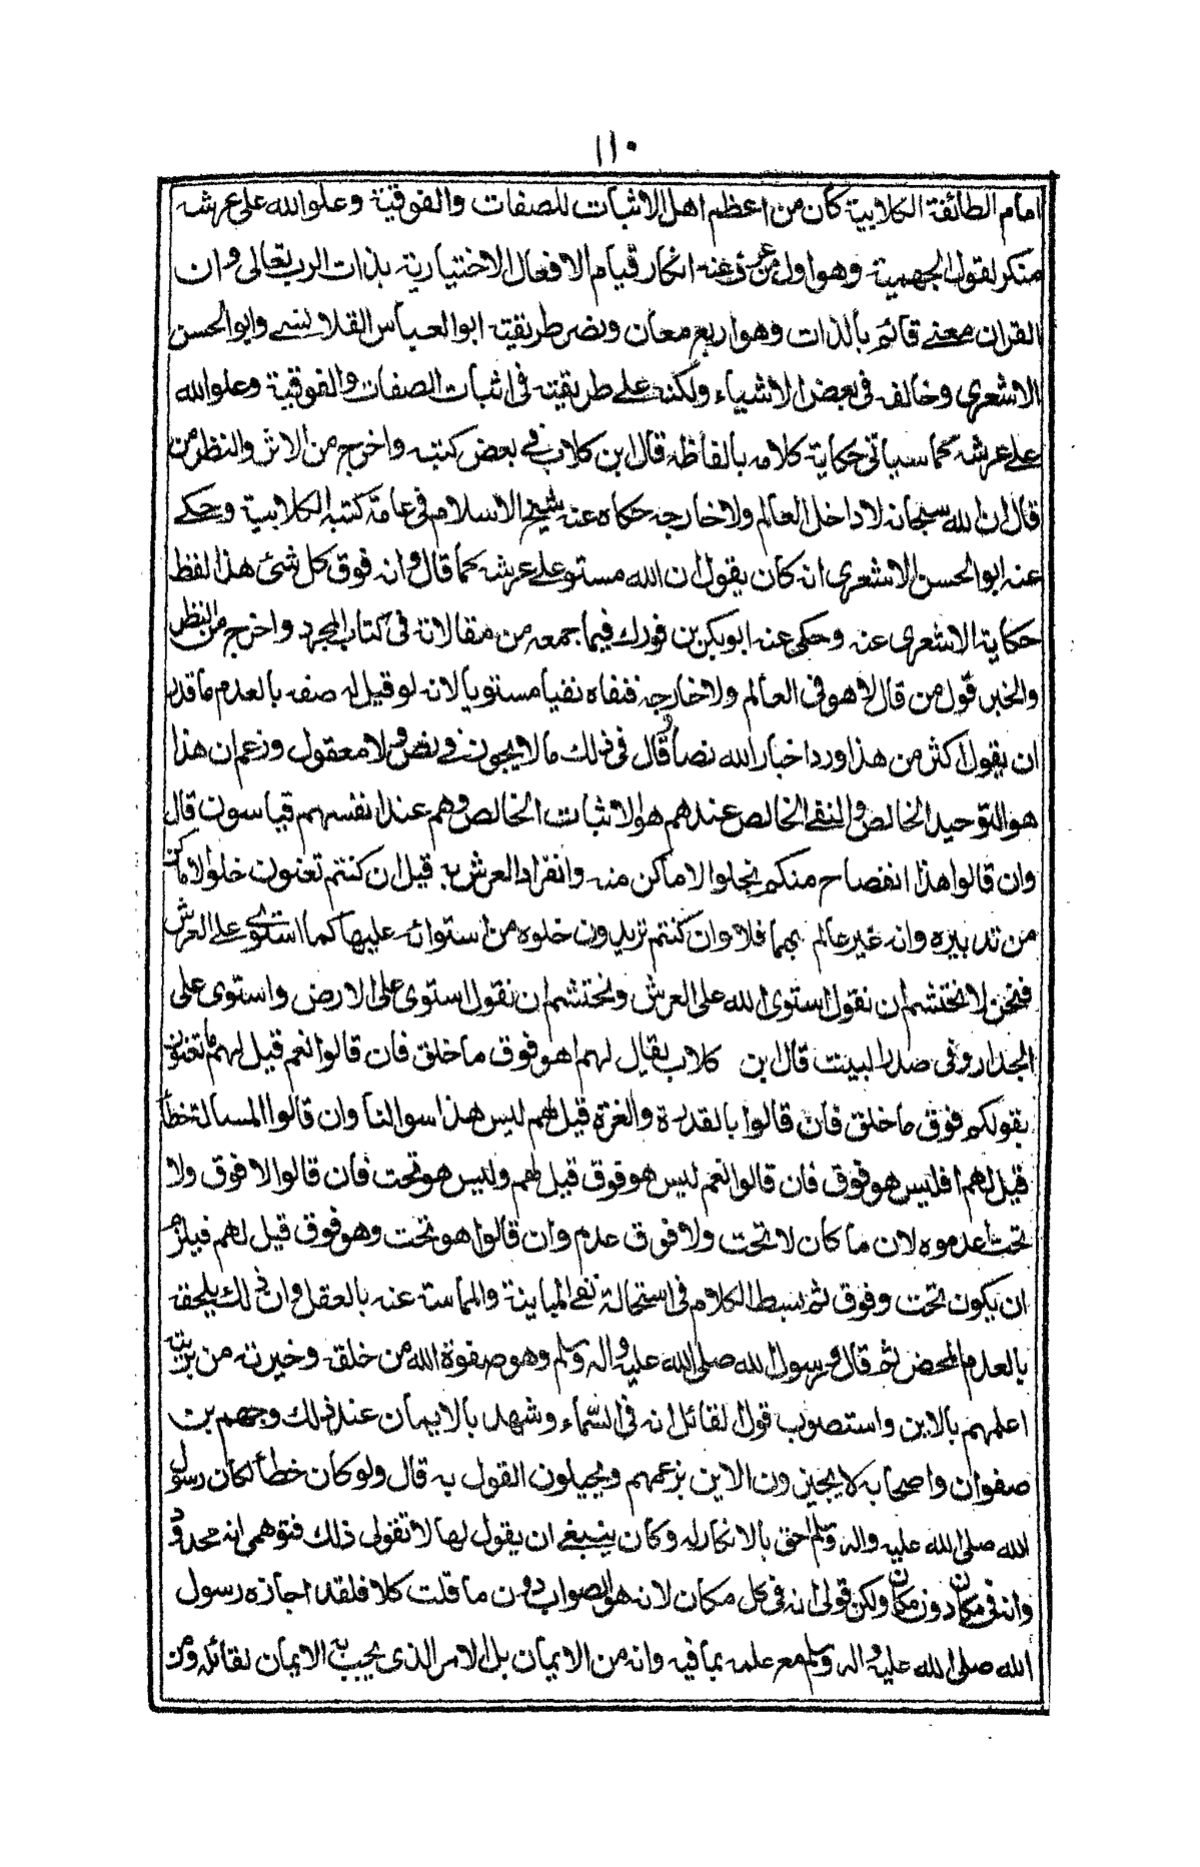 ١١٠
امام الطائفة الكلابية كان من اعظم اهل الاثبات للصفات والفوقية وعلو الله على عرشه
منكر لقول الجهمية وهو اول من عرف عنه انكار قيام الافعال الاختيارية بذات الرب تعالى وان
القران معنے قائم بالذات وهو اربع معان ونصر طريقته ابو العباس القلانسے وابو الحسن
الاشعرى وخالفه فى بعض الاشياء ولكنه علے طريقته فى اثبات الصفات والفوقية وعلو الله
علے عرشه كما سياتى حكاية كلامه بالفاظه قال ابن كلاب فے بعض كتبه واخرج من الاثر والنظر من
قال ان الله سبحانه لا داخل العالم ولا خارجه حكاه عنه شيخ الاسلام فى عامة كتبه الكلابية وحكے
عنه ابو الحسن الاشعرى انه كان يقول ان الله مستو علے عرشه كما قال وانه فوق كل شئ هذا لفظ
حكاية الاشعرى عنه وحكى عنه ابو بكر بن فورك فيما جمعه من مقالاته فى كتاب المجرد واخرج من النظر
والخبر قول من قال لا هو فى العالم ولا خارجه فنفاه نفيا مستويا لانه لو قيل له صفه بالعدم ما قدر
ان يقول اكثر من هذا ورد اخبار الله نصا وقال فى ذلك ما لا يجوز فے نص ولا معقول وزعم ان هذا
هو التوحيد الخالص والنفے الخالص عندهم هو الاثبات الخالص وهم عند انفسهم قياسون قال
وان قالوا هذا انفصاح منكم بخلو الاماكن منه وانفراد العرش به قيل ان كنتم تعنون خلو الاماكن
من تدبيره وانه غير عالم بها فلا وان كنتم تريدون خلوه من استوائه عليها كما استوے علے العرش
فنحن لا نحتشم ان نقول استوى الله على العرش ونحتشم ان نقول استوى على الارض واستوى على
الجدار وفى صدر البيت قال ابن كلاب يقال لهم اهو فوق ما خلق فان قالوا نعم قيل لهم ما تعنون
بقولكم فوق ما خلق فان قالوا بالقدرة والعزة قيل لهم ليس هذا سوالنا وان قالوا المسالة خطأ
قيل لهم افليس هو فوق فان قالوا نعم ليس هو فوق قيل لهم وليس هو تحت فان قالوا لا فوق ولا
تحت اعدموه لان ما كان لا تحت ولا فوق عدم وان قالوا هو تحت وهو فوق قيل لهم فيلزم
ان يكون تحت وفوق ثم بسط الكلام فى استحالة نفے المباينة والمماسة عنه بالعقل وان ذلك يلحقه
بالعدم المحض ثم قال ورسول الله صلى الله عليه واله وسلم وهو صفوة الله من خلقه وخيرته من بريته
اعلمهم بالاين واستصوب قول القائل انه فى السماء وشهد بالايمان عند ذلك وجهم بن
صفوان واصحابه لا يجيزون الاين بزعمهم ويحيلون القول به قال ولو كان خطأ لكان رسول
الله صلى الله عليه واله وسلم احق بالانكار له وكان ينبغے ان يقول لها لا تقولى ذلك فتوهمى انه محدود
وانه فى مكان دون مكان ولكن قولى انه فى كل مكان لانه هو الصواب دون ما قلت كلا فلقد اجازه رسول
الله صلى الله عليه واله وسلم مع علمه بما فيه وانه من الايمان بل الامر الذى يجب به الايمان لقائله ومن